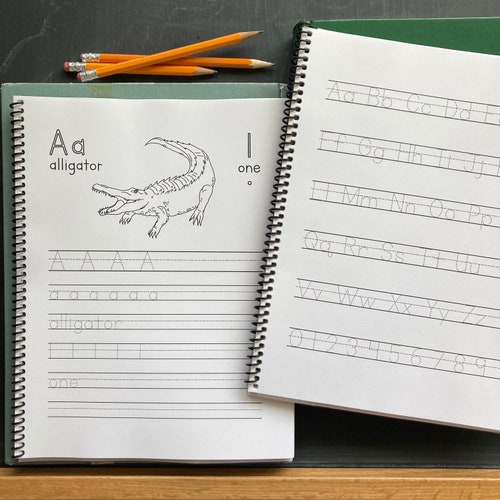 Aa
alligator
1
one
A A A A
a a a a a a
alligator
1 1 1 1 1
one
Aa Bb Cc Dd
Ff Gg Hh Ii Jj
Ll Mm Nn Oo Pp
Qq Rr Ss Tt Uu
Vv Ww Xx Yy Zz
0 1 2 3 4 5 6 7 8 9